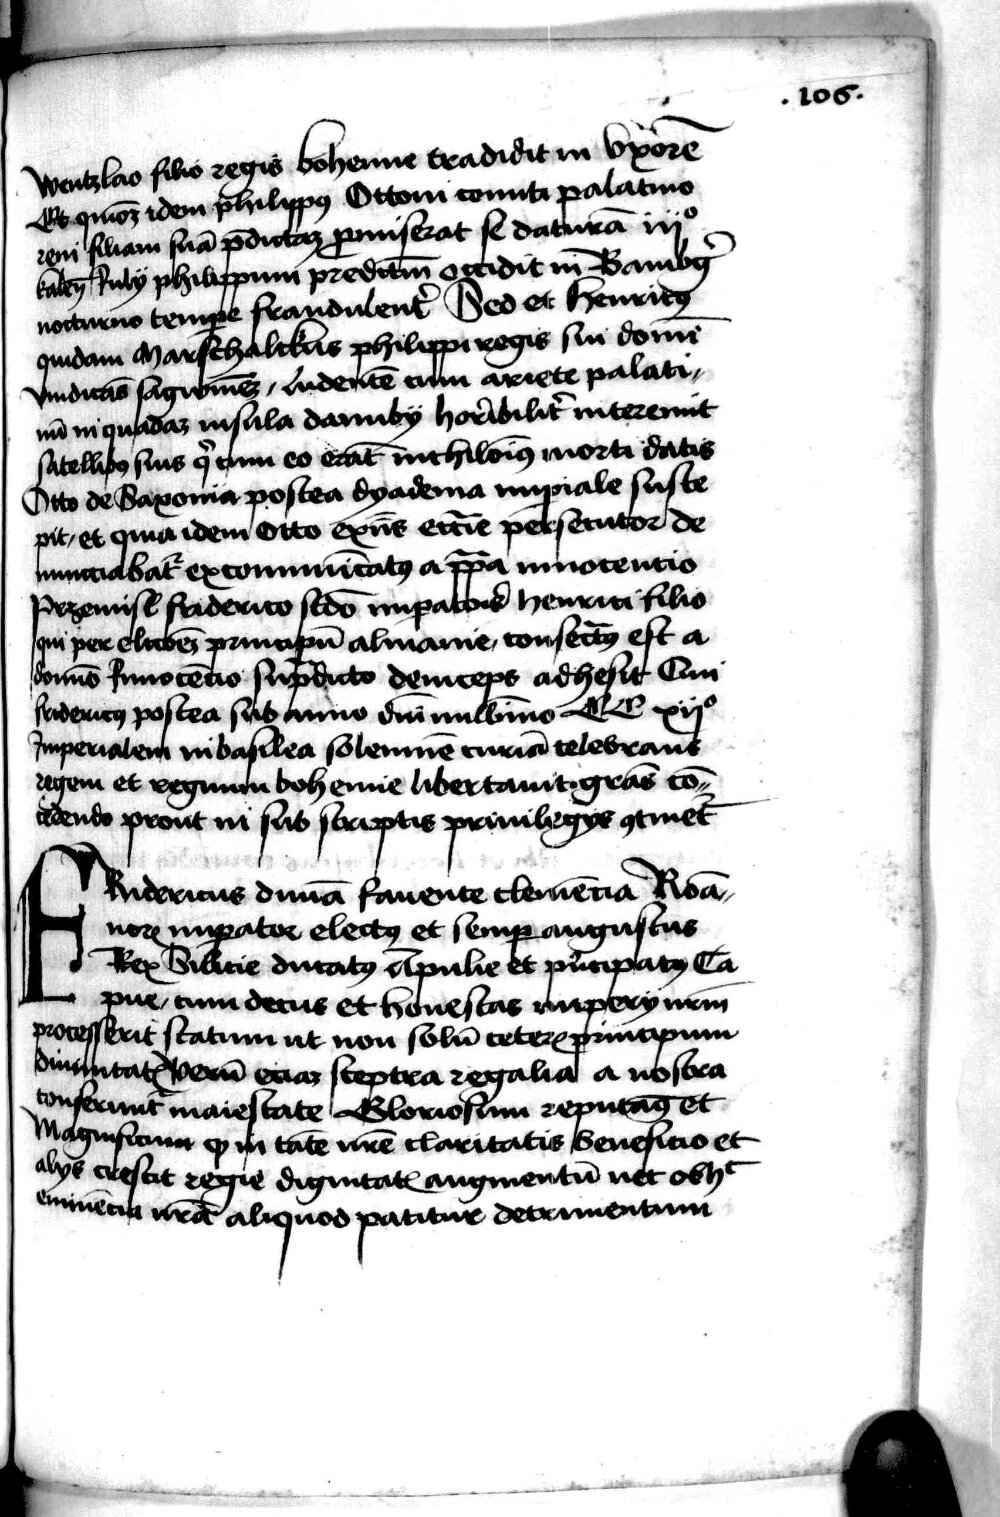 .106.
Wentzlao filio regis bohemie tradidit in vxorē
Et quioꝫ idem philippus Ottoni comiti palatino
reni filiam suā p̄dictaꝫ promiserat se daturā iijº
kaleñ Iulij philippum preditum occidit in Bambergͥ
nocturno tempore fraudulentͥ Sed et Henricus
quidam Marschalckus philippi regis sui domi
vindicās sagwineꝫ, ludentē cum ariete palati,,
nū in quadaꝫ insula danuby horͥbilitͥ interemit
satellibus suis qͥ cum eo erāt inchiloīus morti datis
Otto de Saxonia postea dyadema imperiale susce
pit, et quia idem otto exñs eccīe persecutor de
nunciabatͬ excommūicatus a papa innocentio
Przemisl friderico scdo imperatoris henrici filio
qui per elcōeꝫ principū almanie, consectus est a
domno Innocētio supradicto deinceps adhesit Cui
fridericus postea sub anno dñi millīmo CC xijº
Imperialem in basilea solemnē curiā celebrans
regem et regnum bohemie libertauit. grās cō,,
cedendo prout in sub scriptis priuilegys ꝯtinetͬ
FRidericus diuīa fauente clemēcia Roā,,
noꝝ imperator electus et semper augustus
Rex Sicilie ducatus Apulie et prͥcipatus Ca
pue, cum decus et honestas impery nrm̄
processerit statum ut non solū ceteroꝝ principum
diuinitatꝭ verū eciaꝫ sceptra regalia a nostra
conferuntͬ maiestate Gloriosum reputāꝰ et
Magnificum qꝫ in tāte nrē claritatis beneficio et
alys crescit regie dignitatꝭ augmentū nec obhᶜ
eminēcia nrā aliquod patitur detrimentum